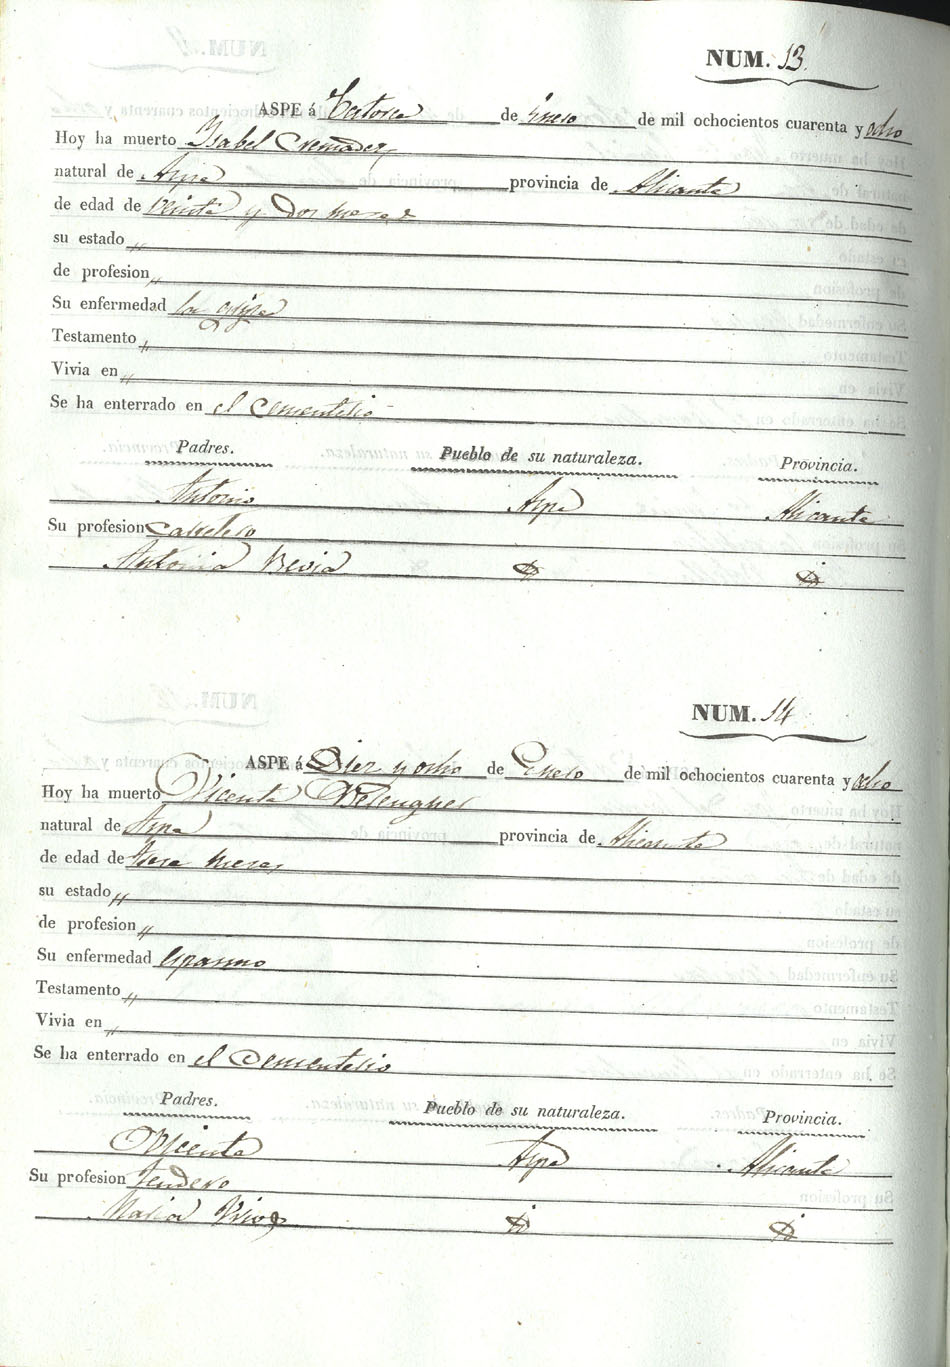 NUM. 13.
ASPE á Catorce de Enero de mil ochocientos cuarenta y ocho
Hoy ha muerto Ysabel Cremades
natural de Aspe provincia de Alicante
de edad de veinte y dos meses
su estado „
de profesion „
Su enfermedad la gripe
Testamento „
Vivia en „
Se ha enterrado en el Cementerio
Padres. Pueblo de su naturaleza. Provincia.
Antonio Aspe Alicante
Su profesion
Antonia Bevia
NUM. 14
ASPE á Diez y ocho de Enero de mil ochocientos cuarenta y ocho
Hoy ha muerto Vicenta Belenguer
natural de Aspe provincia de Alicante
de edad de trese meses
su estado „
de profesion „
Su enfermedad espasmo
Testamento „
Vivia en „
Se ha enterrado en el Cementerio
Padres. Pueblo de su naturaleza. Provincia.
Vicente Aspe Alicante
Su profesion tendero
Maria